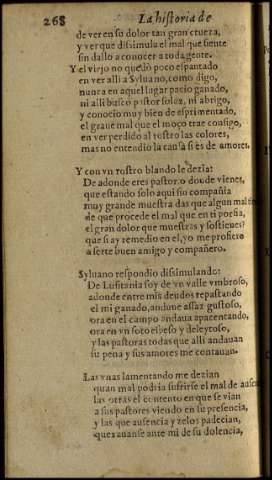 268 La historia de
de ver en so dolor tan gran crueza,
y ver que dissimula el mal que siente
sin dallo a conocer a toda gente.
Y el viejo no quedò poco espantado
en ver alli a Syluano, como digo,
nunca en aquel lugar pacio ganado,
ni alli buscò pastor solaz, ni abrigo,
y conocio muy bien de esprimentado,
el graue mal que el moço trae contigo,
en ver perdido al rostro las colores,
mas no entendio la causa si es de amores.
Y con vn rostro blando le dezia:
De adonde eres pastor, o donde vienes,
que estando solo aqui sin compañia
muy grande muestra das que algun mal
de que procede el mal que en ti porfia,
el gran dolor que muestras y sostienes?
que si ay remedio en el, yo me profiero
a serte buen amigo y compañero.
Syluano respondio dissimulando:
De Lusitania soy de vn valle vmbroso,
adonde entre mis deudos repastando
el mi ganado, anduue assaz gustoso,
ora en el campo andaua apacentando,
ora en vn soto espeso y deleytoso,
y las pastoras todas que alli andauan
su pena y sus amores me contauan.
Las vnas lamentando me dezian
quan mal podria suffrirse el mal de ausen
las otras el contento en que se vian
a sus pastores viendo en su presencia,
y las que ausencia y zelos padecian,
quexauanse ante mi de su dolencia,